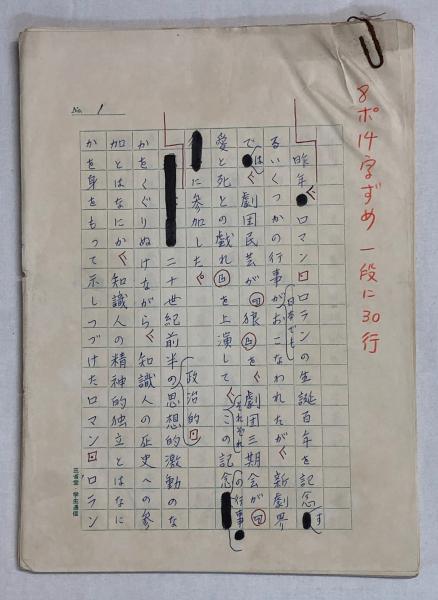 8ポ14字ずめ 一段に30行
No. 1
昨年、ロマン・ロランの生誕百年を記念す
るいくつかの行事が日本でもおこなわれたが、新劇界
では、劇団民芸が「狼」を、劇団三期会が「
愛と死との戯れ」を上演して、それぞれこの記念の行事
に参加した。
二十世紀前半の政治的・思想的激動のな
かをくぐりぬけながら、知識人の歴史への参
加とはなにか、知識人の精神的独立とはなに
かを身をもって示しつづけたロマン・ロラン
三省堂 学生通信